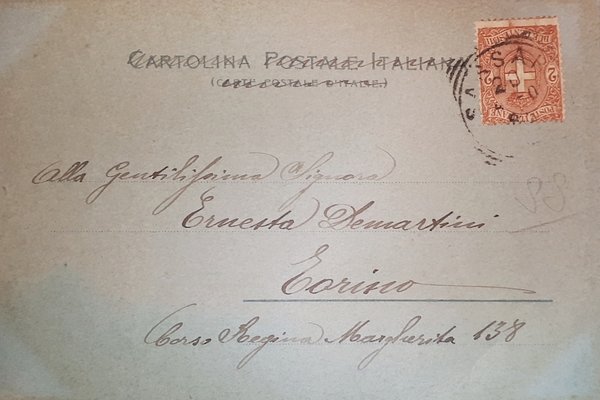 CARTOLINA POSTALE ITALIANA
(CARTE POSTALE D'ITALIE.)
2
Alla Gentilissima Signora
Ernesta Demartini
Torino
Corso Regina Margherita 138